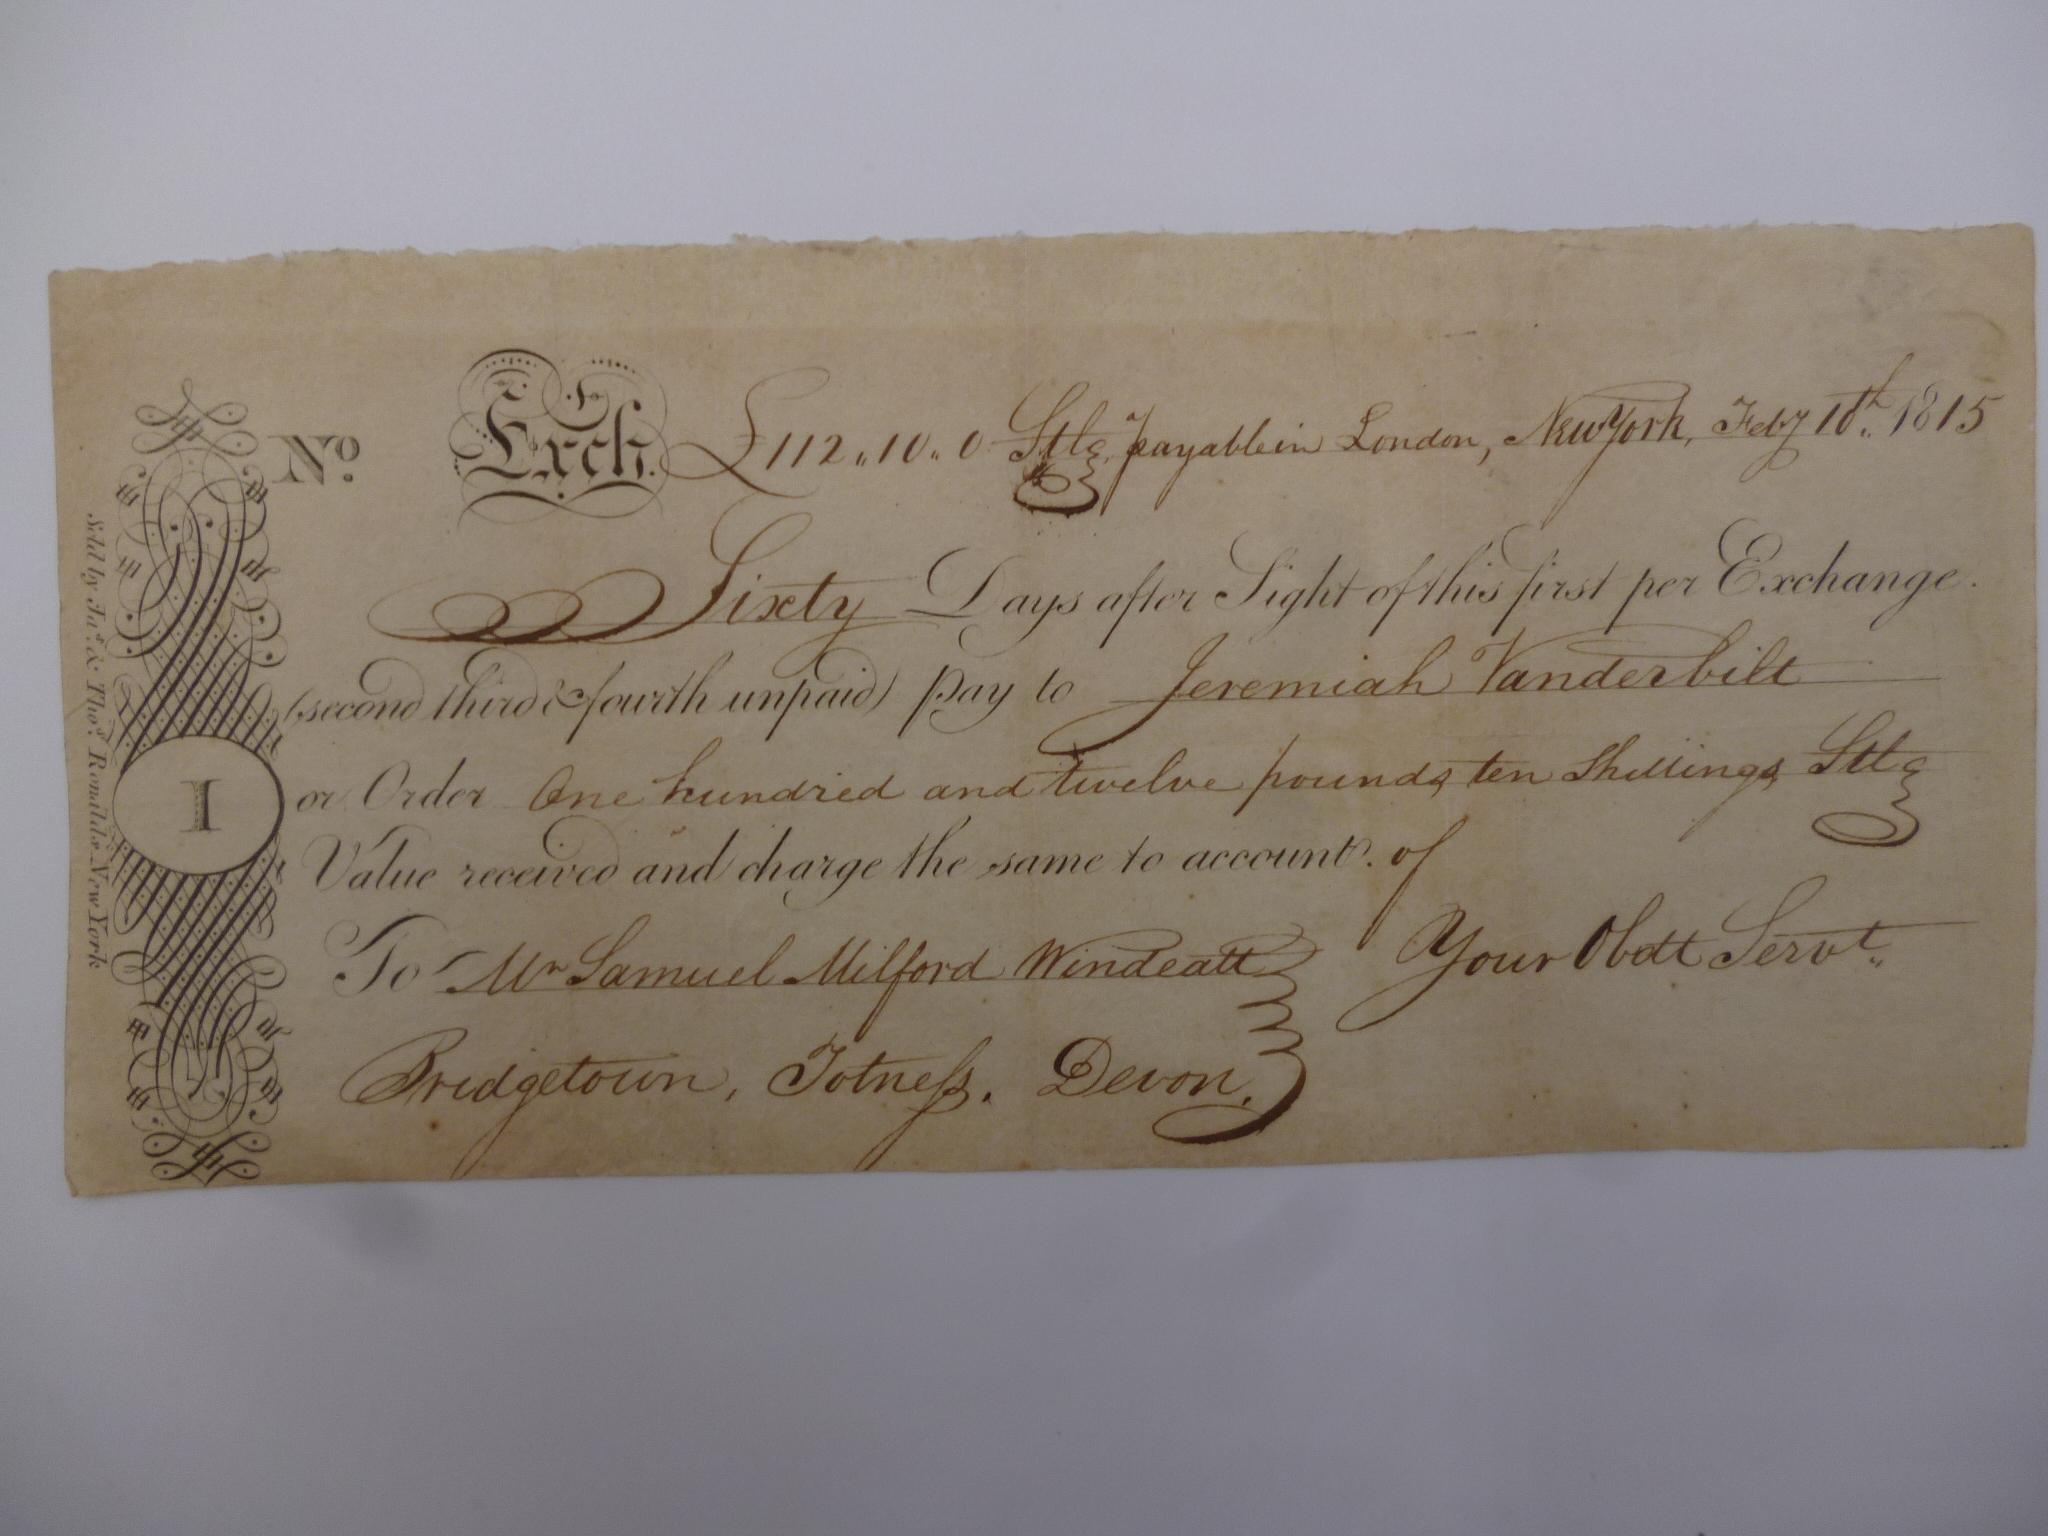 Nº. Exch. £112,,10,,0 Stlg, payable in London, New York, Feby 10th,, 1815
Sixty Days after Sight of this first per Exchange.
(second third & fourth unpaid) pay to Jeremiah Vanderbilt
or Order One hundred and twelve pounds, ten Shillings, Stlg
Value received and charge the same to account. of
To Mr Samuel Milford Windeatt Your Obdt Servt,,
Bridgetown, Totneſs. Devon.
I
Sold by Jas. & Thos. Ronalds New York